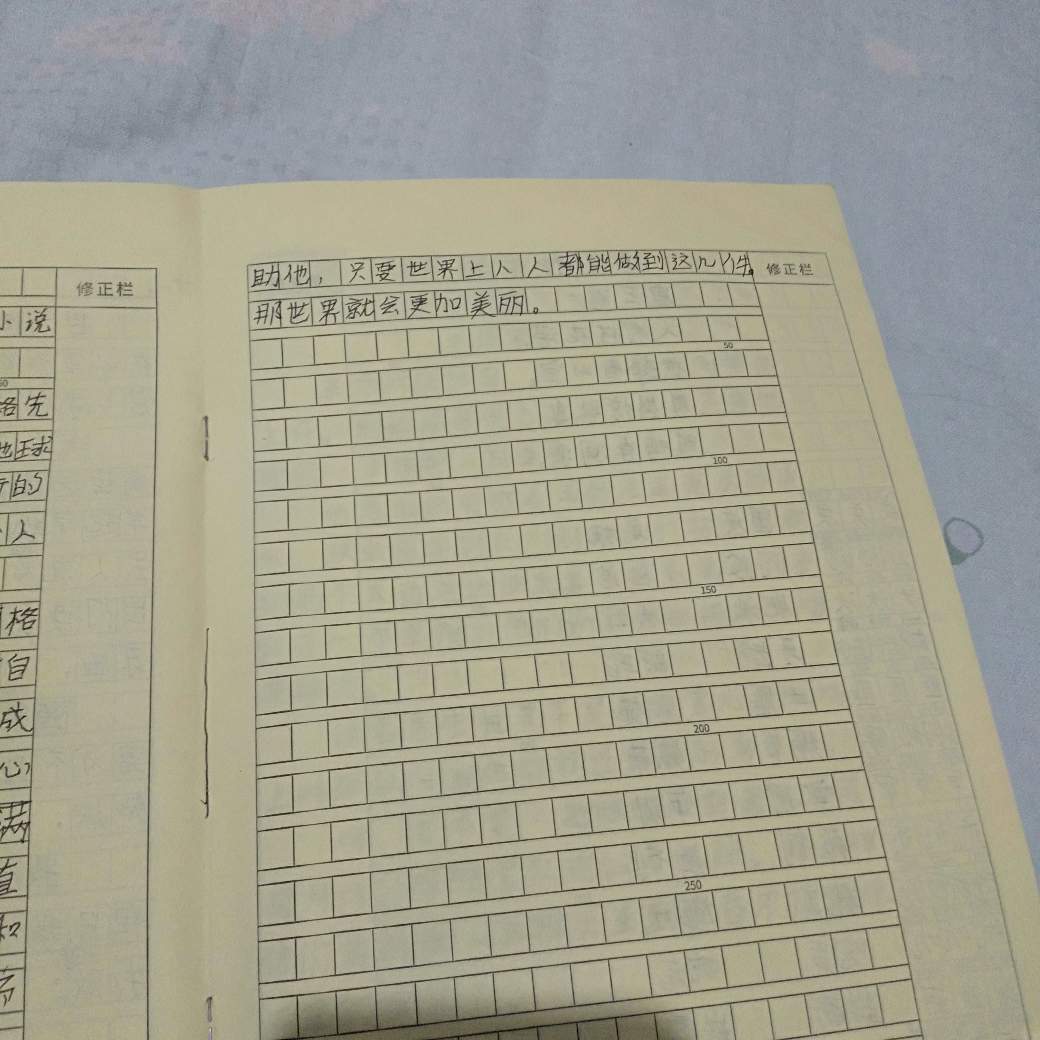 修正栏
小说
60
格先
地球
的
人
格
自
成
心
满
直
和
高
助他，只要世界上人人都能做到这几件。
修正栏
那世界就会更加美丽。
50
100
150
200
250